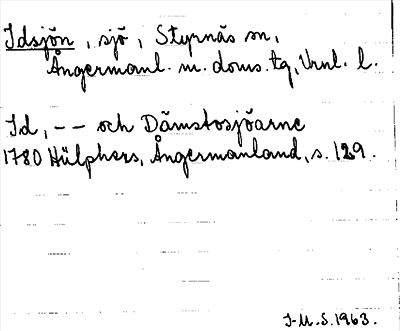 Idsjön, sjö, Styrnäs sn,
Ångermanl. m. doms.tg, Vnl. l.
Id, -- och Dämstosjöarne
1780 Hülphers, Ångermanland, s. 129.
J-M.S. 1963.